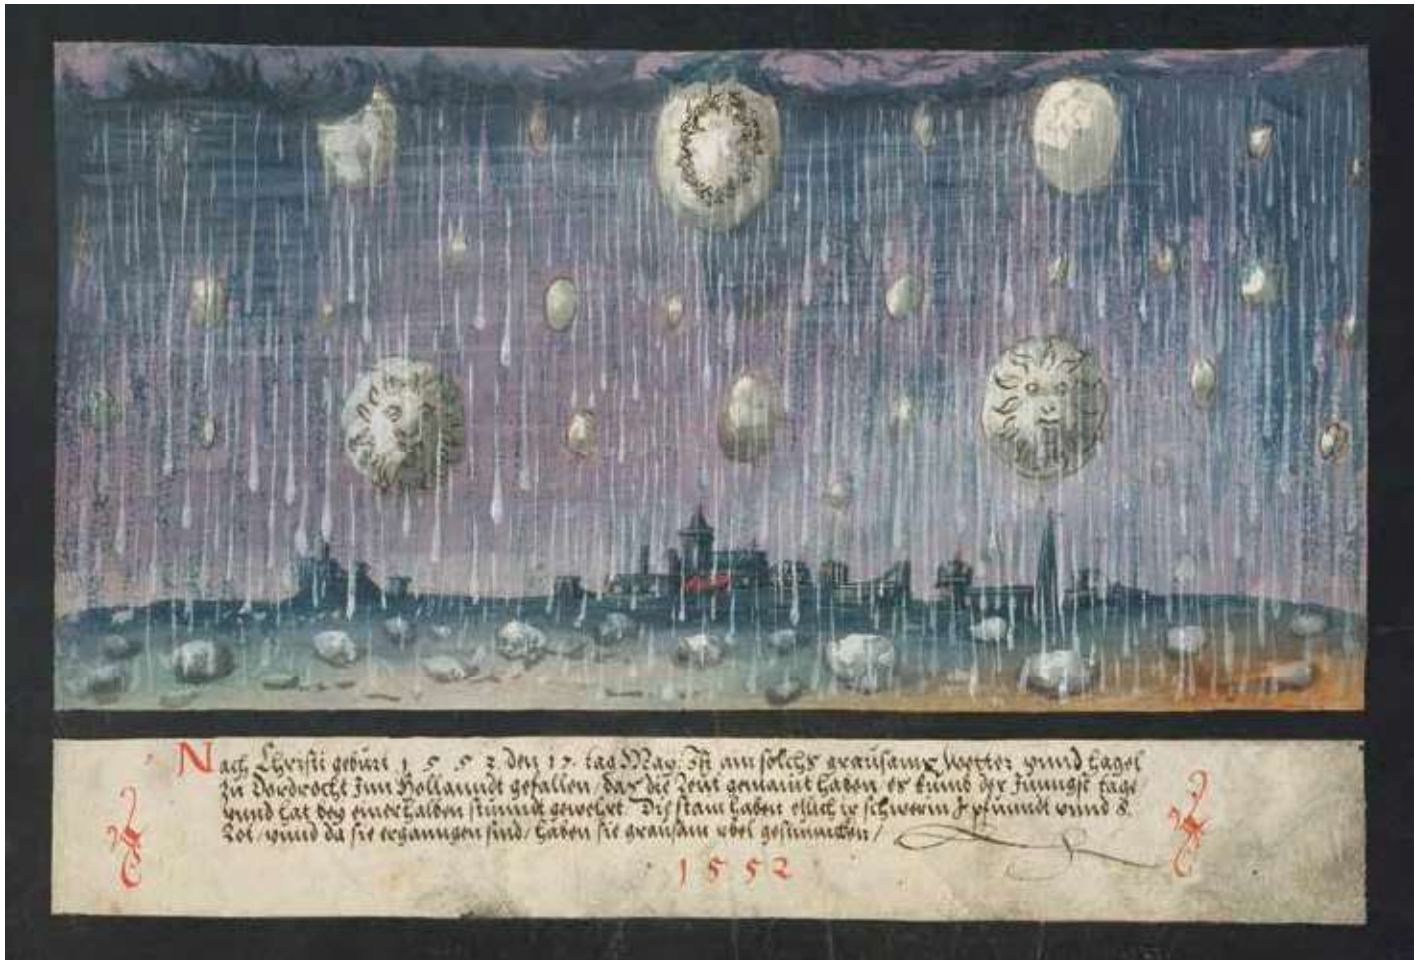 Nach Christi geburt 1 5 5 2. den 17. tag May. Ist ain solchs grausams Wetter vnnd hagel
zu Dordrecht Inn Hollanndt gefallen, das die leut gemaint haben es kumb der Jungst tage
vnnd hat bey einer halben stundt gewehrt. Die stain haben etlich ir schwerin pfunndt vnnd 8.
Lot, vnnd da sie erganngen sind, haben sie grausam vbel gestunncken/
1 5 5 2